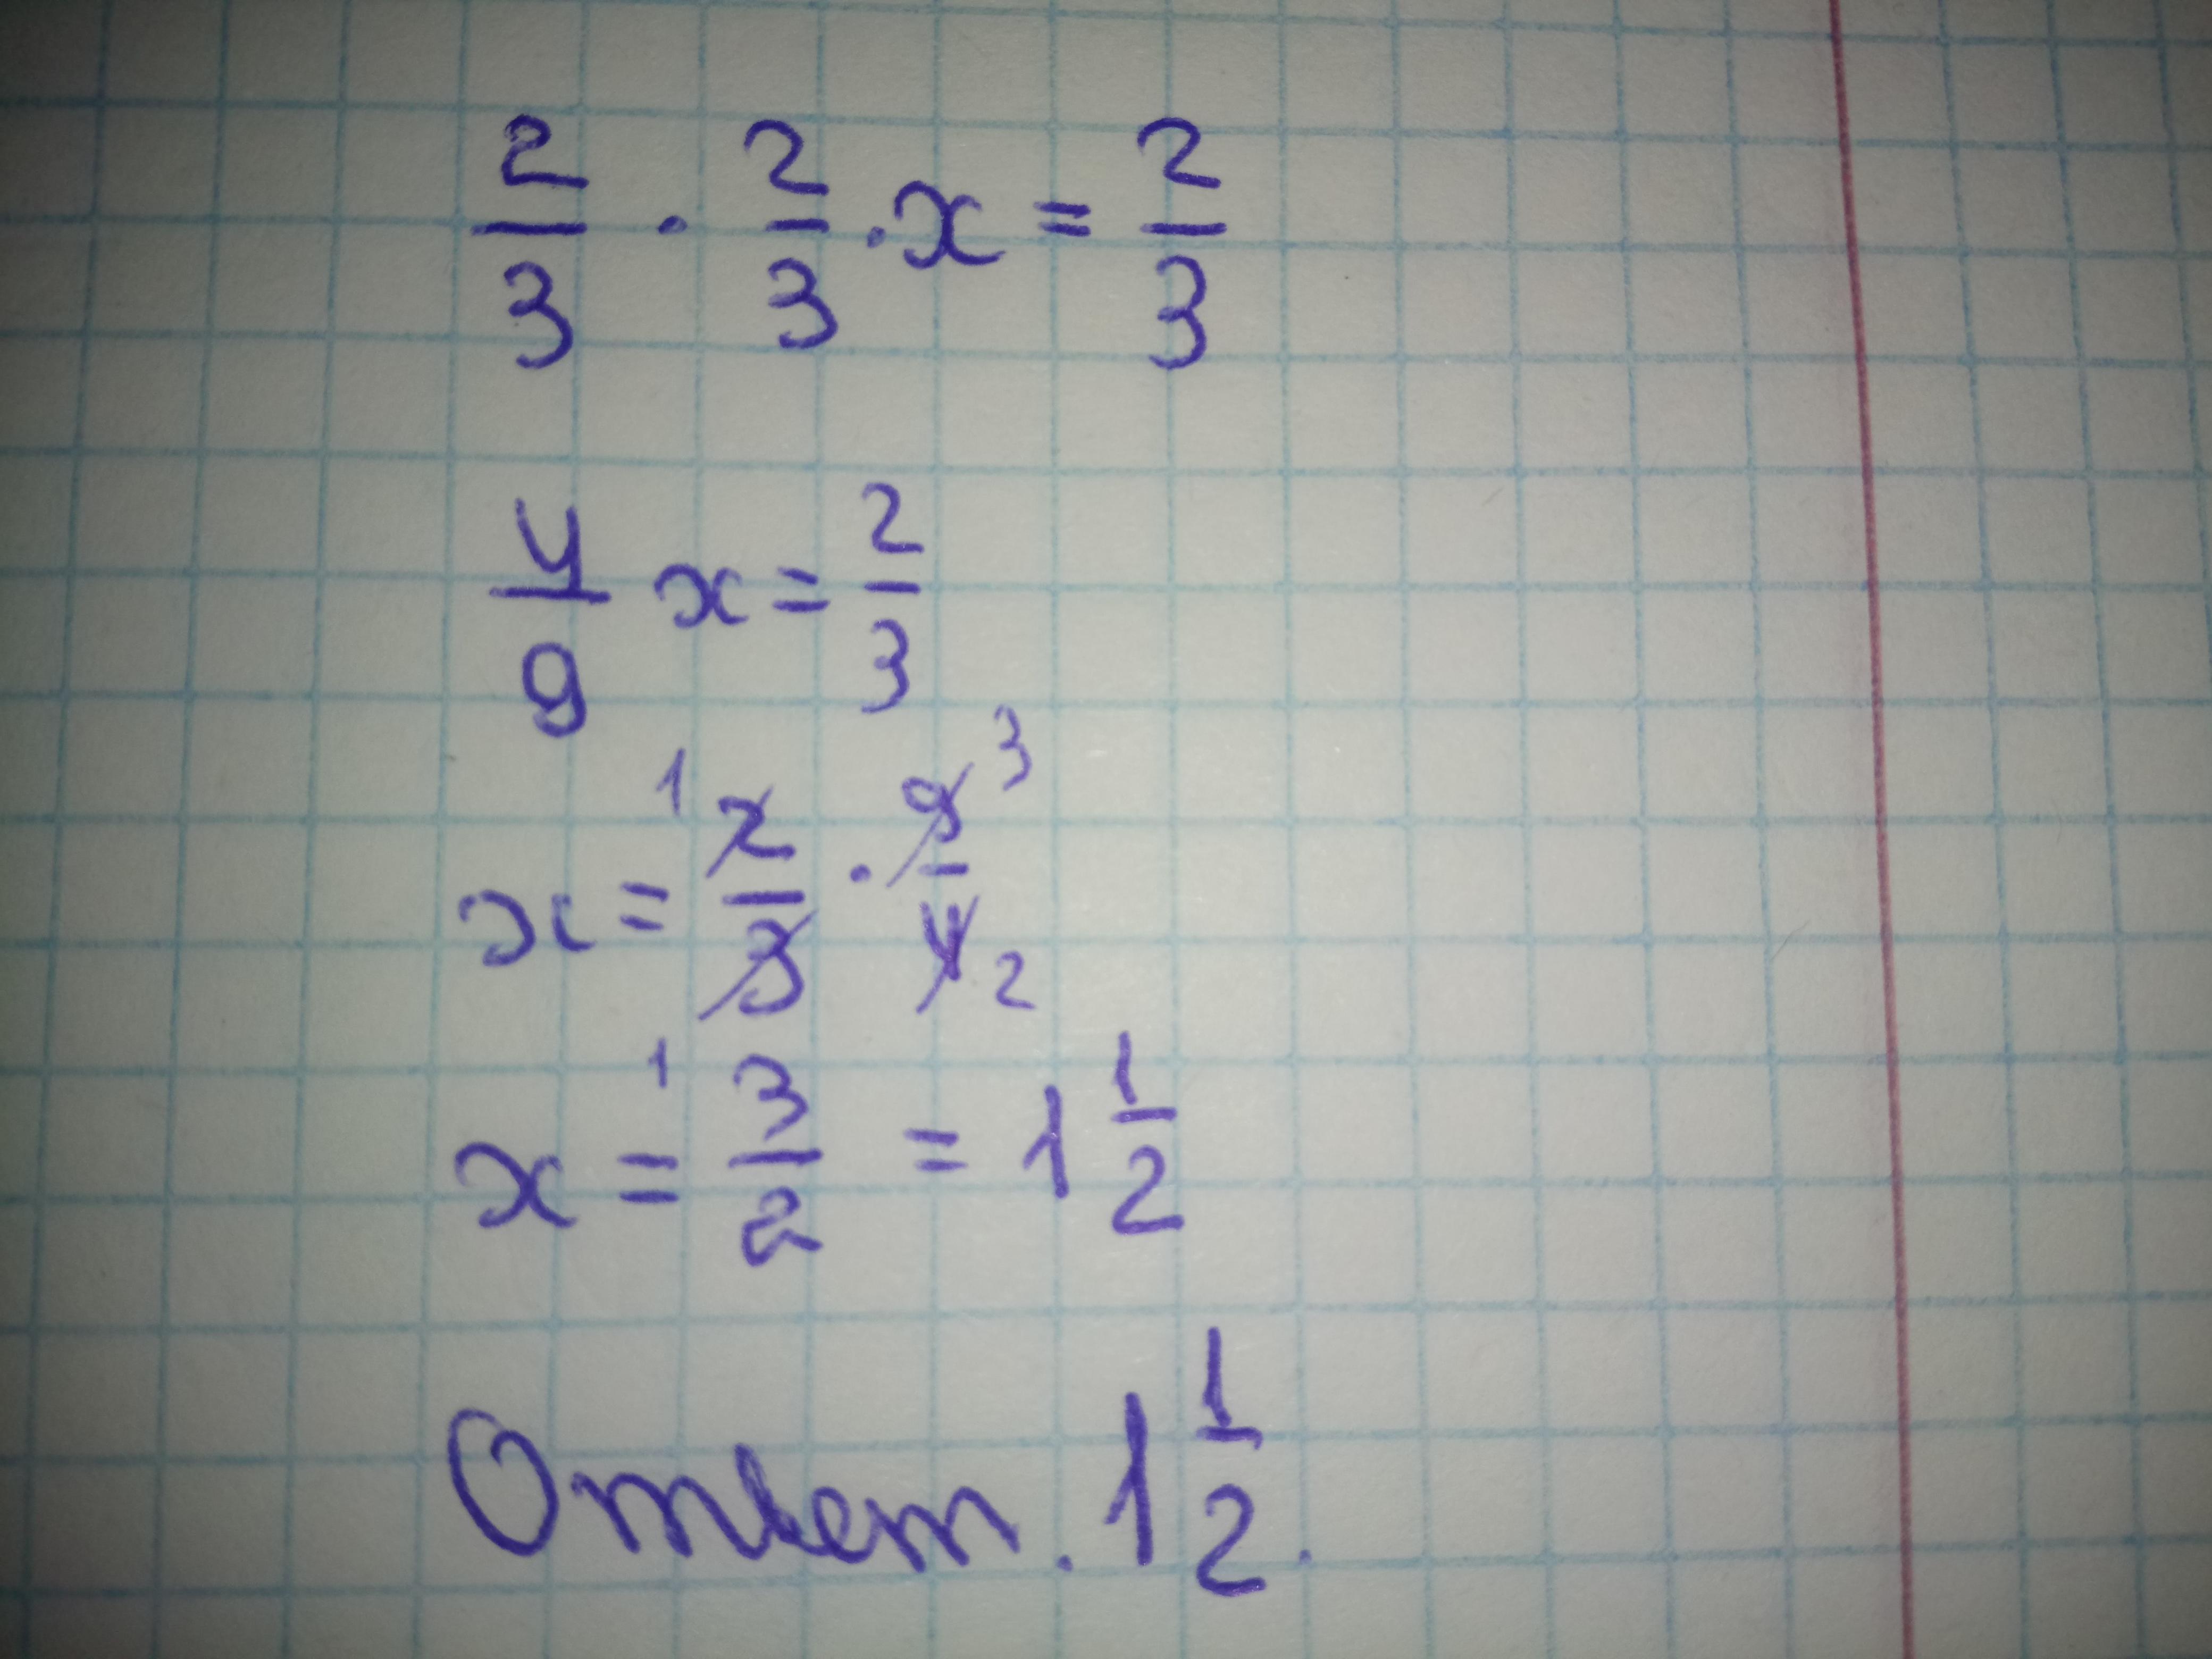 2/3 · 2/3 · x = 2/3
4/9 x = 2/3
x = 1 2/3 · 9/4 3 2
x = 1 3/2 = 1 1/2
Ответ. 1 1/2.